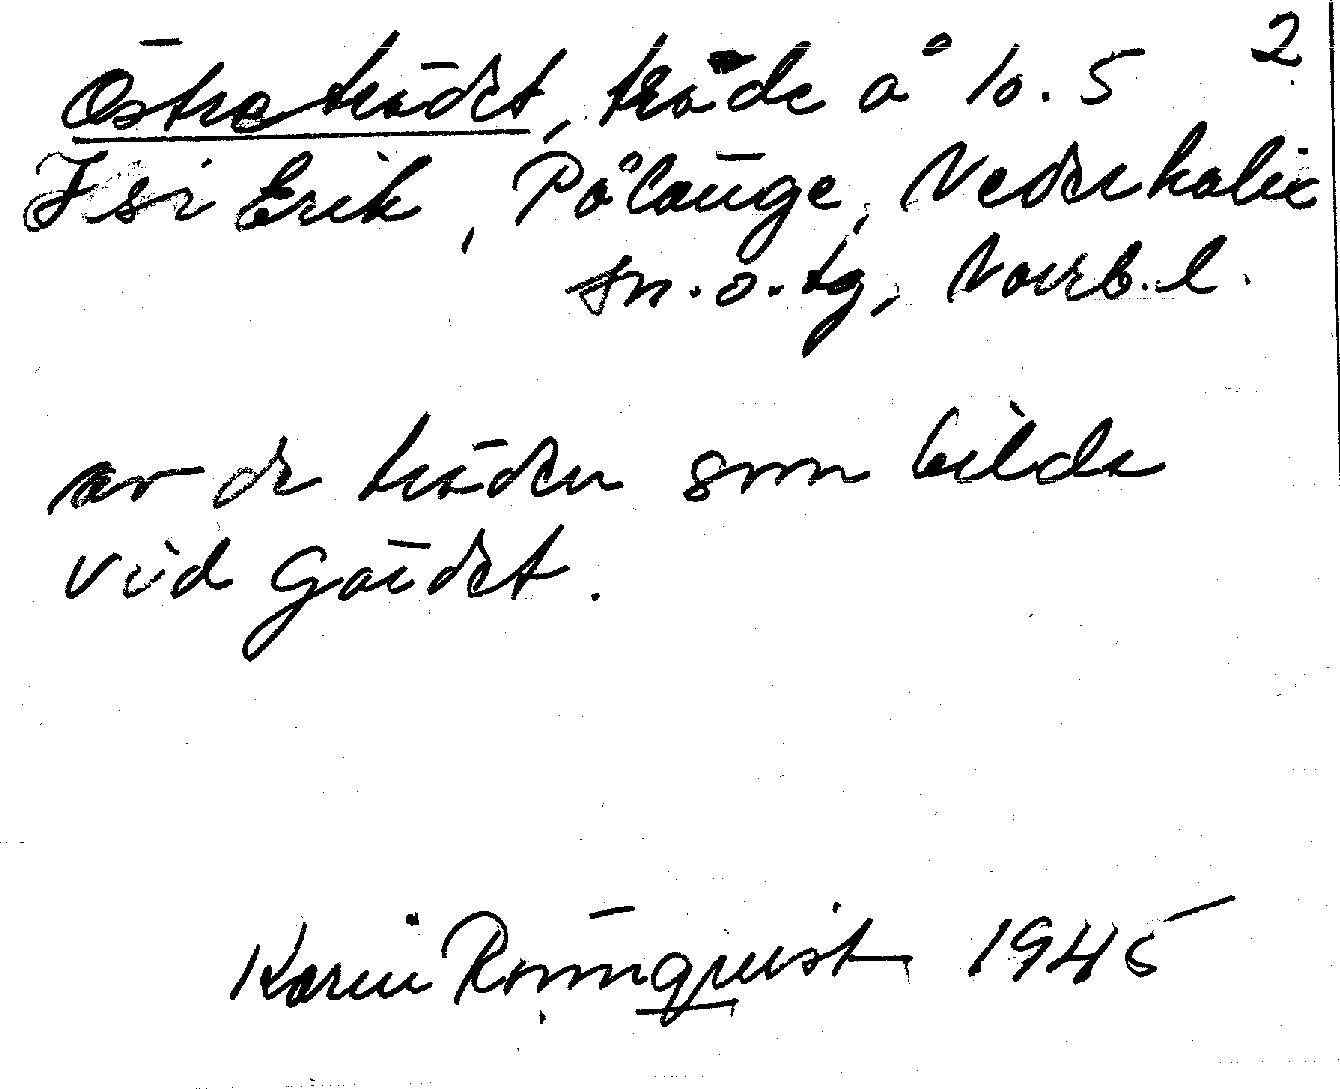 2
Östraträdet, träde å lo. 5
Isi Erik, Pålänge, Nederkalix
sn. o. tg, Norrb. l.
av de träden som bilda
vid Gärdet.
Karin Rönnqvist 1945